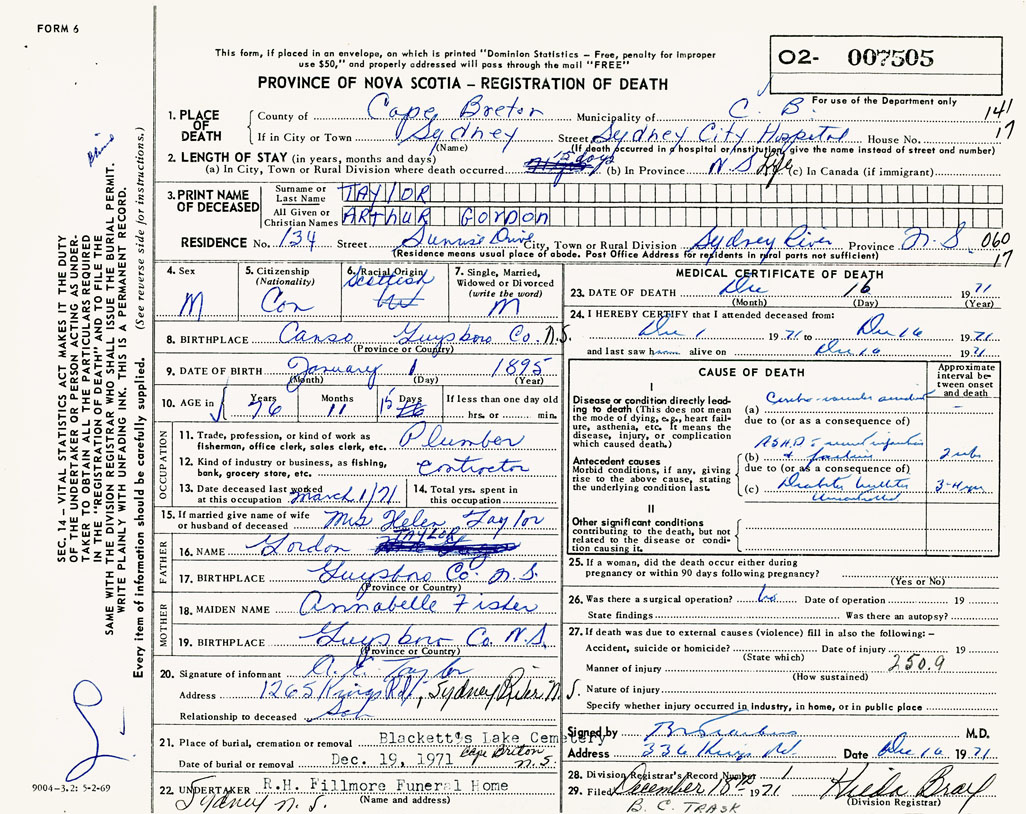 FORM 6
This form, if placed in an envelope, on which is printed "Dominion Statistics – Free, penalty for improper
use $50," and properly addressed will pass through the mail "FREE"
PROVINCE OF NOVA SCOTIA – REGISTRATION OF DEATH
02- 007505
For use of the Department only
141
17
1. PLACE OF DEATH
County of Cape Breton Municipality of C. B.
If in City or Town Sydney Street Sydney City Hospital House No.
(Name) (If death occurred in a hospital or institution, give the name instead of street and number)
2. LENGTH OF STAY (in years, months and days)
(a) In City, Town or Rural Division where death occurred 15 days (b) In Province N S Life (c) In Canada (if immigrant)
3. PRINT NAME OF DECEASED
Surname or Last Name TAYLOR
All Given or Christian Names ARTHUR GORDON
RESIDENCE No. 134 Street Sunrise Drive City, Town or Rural Division Sydney River Province N. S. 060
(Residence means usual place of abode. Post Office Address for residents in rural parts not sufficient) 17
4. Sex M
5. Citizenship (Nationality) Can
6. Racial Origin Scottish
7. Single, Married, Widowed or Divorced (write the word) M
8. BIRTHPLACE Canso Guysboro Co. N.S.
(Province or Country)
9. DATE OF BIRTH January 1 1895
(Month) (Day) (Year)
10. AGE in Years 76 Months 11 Days 15 If less than one day old hrs. or min.
OCCUPATION
11. Trade, profession, or kind of work as fisherman, office clerk, sales clerk, etc. Plumber
12. Kind of industry or business, as fishing, bank, grocery store, etc. Contractor
13. Date deceased last worked at this occupation March 1/71
14. Total yrs. spent in this occupation
15. If married give name of wife or husband of deceased Mrs Helen Taylor
FATHER
16. NAME Gordon TAYLOR
17. BIRTHPLACE Guysboro Co. N. S.
(Province or Country)
MOTHER
18. MAIDEN NAME Annabelle Fisher
19. BIRTHPLACE Guysboro Co. N.S.
(Province or Country)
20. Signature of informant Taylor
Address 1265 Kings Rd, Sydney River N S.
Relationship to deceased Son
21. Place of burial, cremation or removal Blackett's Lake Cemetery
Cape Breton N. S.
Date of burial or removal Dec. 19, 1971
22. UNDERTAKER R.H. Fillmore Funeral Home
Sydney N. S. (Name and address)
MEDICAL CERTIFICATE OF DEATH
23. DATE OF DEATH Dec 16 1971
(Month) (Day) (Year)
24. I HEREBY CERTIFY that I attended deceased from:
Dec 1 1971 to Dec 16 1971
and last saw him alive on Dec 16 1971
CAUSE OF DEATH
Approximate interval between onset and death
I
Disease or condition directly leading to death (This does not mean the mode of dying, e.g., heart failure, asthenia, etc. It means the disease, injury, or complication which caused death.)
(a)
due to (or as a consequence of)
Antecedent causes
Morbid conditions, if any, giving rise to the above cause, stating the underlying condition last.
(b)
due to (or as a consequence of)
(c) Diabetes
II
Other significant conditions contributing to the death, but not related to the disease or condition causing it.
25. If a woman, did the death occur either during pregnancy or within 90 days following pregnancy?
(Yes or No)
26. Was there a surgical operation? No Date of operation 19
State findings Was there an autopsy?
27. If death was due to external causes (violence) fill in also the following: –
Accident, suicide or homicide? Date of injury 19
(State which)
Manner of injury 250.9
(How sustained)
Nature of injury
Specify whether injury occurred in industry, in home, or in public place
Signed by M.D.
Address 336 Kings Rd. Date Dec 16 1971
28. Division Registrar's Record Number 1
29. Filed December 18th 1971 Hilda Bray
(Division Registrar)
B. C. TRASK
SEC. 14 – VITAL STATISTICS ACT MAKES IT THE DUTY
OF THE UNDERTAKER OR PERSON ACTING AS UNDER-
TAKER TO OBTAIN ALL THE PARTICULARS REQUIRED
IN THE "REGISTRATION OF DEATH" AND TO FILE THE
SAME WITH THE DIVISION REGISTRAR WHO SHALL ISSUE THE BURIAL PERMIT.
WRITE PLAINLY WITH UNFADING INK. THIS IS A PERMANENT RECORD.
Every item of information should be carefully supplied. (See reverse side for instructions.)
9004-3.2: 5-2-69